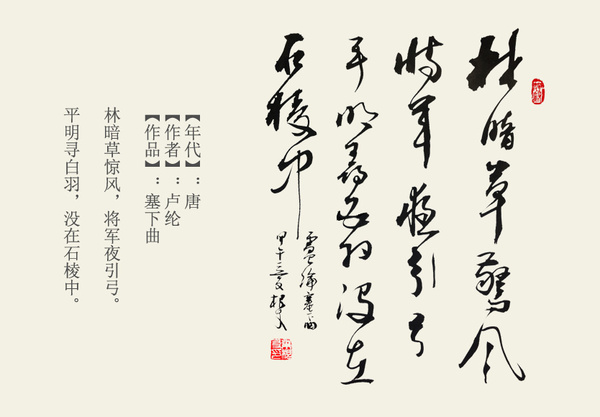 林暗草惊风
将军夜引弓
平明寻白羽没在
石棱中
卢纶塞下曲
【年代】：唐
【作者】：卢纶
【作品】：塞下曲
林暗草惊风，将军夜引弓。
平明寻白羽，没在石棱中。